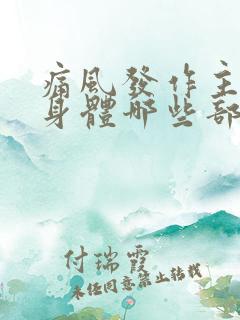 痛風發作主
身體哪些部
付瑞霞
未经同意禁止转载